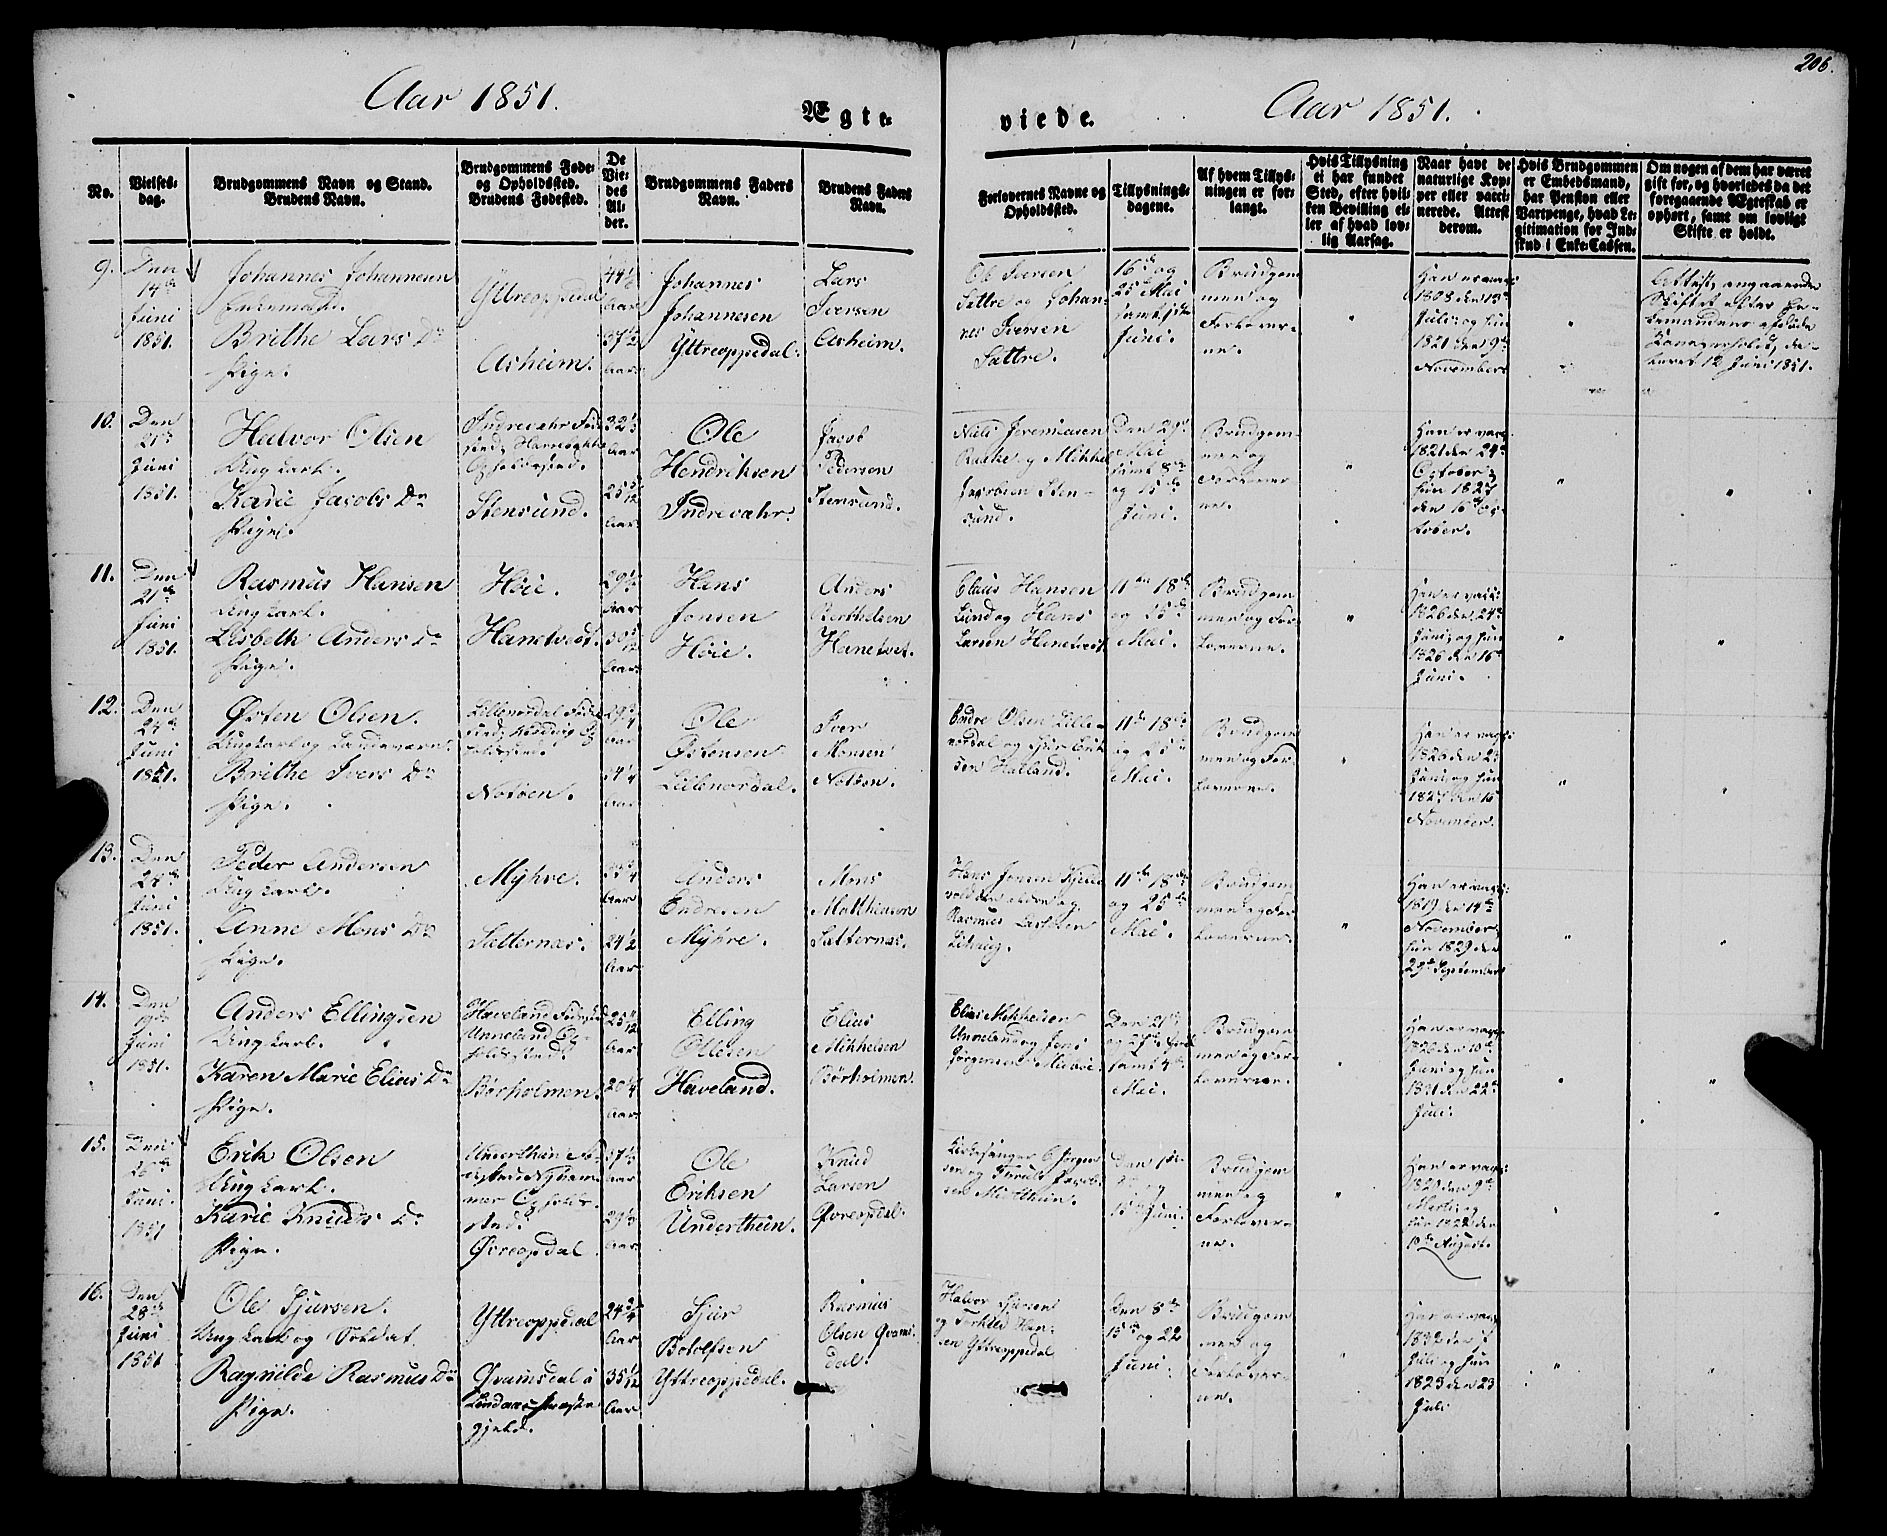 206.
Aar 1851.
Ægte-
viede.
Aar 1851.
No.
Vielses-
dag.
Brudgommens Navn og Stand.
Brudens Navn.
Brudgommens Føde-
og Opholdssted.
Brudens Fødested.
De
Vie-
des
Al-
der.
Brudgommens Faders
Navn.
Brudens Faders
Navn.
Forlovernes Navne og
Opholdssted.
Tillysnings-
dagene.
Af hvem Tillys-
ningen er for-
langt.
Hvis Tillysning
ei har fundet
Sted, efter hvil-
ken Bevilling el-
ler af hvad lov-
lig Aarsag.
Naar havt de
naturlige Kop-
per eller vacci-
nerede. Attest
derom.
Hvis Brudgommen
er Embedsmand,
har Pension eller
Vartpenge, hvad Le-
gitimation for Ind-
skud i Enke-Cassen.
Om nogen af dem har været
gift før, og hvorledes da det
foregaaende Ægteskab er
ophørt, samt om lovligt
Skifte er holdt.
9.
Den
14de
Juni
1851.
Johannes Johannesen
Enkemand.
Brithe Lars Dr
Pige.
Yttreoppedal
Asheim.
44 1/2
Aar
37 1/2
Aar
Johannes
Johannesen
Yttreoppedal.
Lars
Iversen
Asheim.
Ole Iversen
Sættre og Johan-
nes Iversen
Sættre.
16de og
25de Mai
samt 1ste
Juni.
Brudgom-
men og
Forlover-
ne.
Han er vacc:
1808 den 13de
Juli og hun
1821 den 9de
November
Attest, angaaende
Skiftet efter
12 Juni 1851.
10.
Den
21de
Juni
1851.
Halvor Olsen
Ungkarl.
Karie Jacobs Dr
Pige.
Indrevahr
Stensund.
32 1/2
Aar
25 5/12
Aar
Ole
Hendriksen
Indrevahr.
Jacob
Pedersen
Stensund.
Niels Jeremiasen
og Mikkel
Jacobsen Sten-
sund.
Den 29de
Mai
samt 8de
og 15de
Juni.
Brudgom-
men og
Forlover-
ne.
Han er vacc:
1821 den 24de
October,
hun 1827
den 16de Oc-
tober.
11.
Den
21de
Juni
1851.
Rasmus Hansen
Ungkarl.
Lisbeth Anders Dr
Pige.
Høie.
Hanetvedt.
29 1/2
Aar
30 5/12
Aar
Hans
Jonsen
Høie.
Anders
Berthelsen
Hanetvet.
Claus Hansen
Lund og Hans
Larsen Hanetvedt
11te 18de
og 25de
Mai.
Brudgom-
men og For-
loverne.
Han er vacc:
1826 den 24de
Juni, og hun
1826 den 16de
Juni.
12.
Den
24de
Juni
1851.
Østen Olsen.
Ungkarl og Landeværn.
Brithe Ivers Dr
Pige.
Lillenordal
Notøen.
29 3/4
Aar
34 1/4
Aar
Ole
Østensen
Lillenordal.
Iver
Monsen
Notøen.
Endre Olsen Lille-
nordal og Sjur Erik-
sen Hatland.
11te 18de
og 25de
Mai.
Brudgom-
men og For-
loverne.
Juni, og hun
November.
13.
Den
24de
Juni
1851.
Peder Andersen
Ungkarl.
Anne Mons Dr
Pige.
Myhre.
Sætternæs.
Aar
24 1/2
Aar
Anders
Endresen
Myhre.
Mons
Matthiasen
Sætternæs.
Hans Jensen
Rasmus
11te 18de
og 25de
Mai.
Brudgom-
men og For-
loverne.
Han er vacc:
1819 den 14de
November,
hun 1829 den
29de September
14.
Den
19de
Juni
1851.
Anders Ellingsen
Ungkarl.
Karen Marie Elias Dr
Pige.
Haveland Fødested
Unneland Op-
holdssted.
Børholmen.
25 11/12
Aar
20 1/4
Aar
Elling
Ollesen
Haveland.
Elias
Mikkelsen
Børholmen.
Elias Mikkelsen
Unneland og Jens
Jørgensen
Den 21de
samt 4de
Mai.
Brudgom-
men og For-
loverne.
Juni og hun
1831 den 22de
Juli.
15.
Den
Juni
1851
Erik Olsen
Ungkarl.
Karie Knuds Dr
Pige.
Øvreopdal
37 1/2
Aar
29 1/2
Aar
Ole
Eriksen
Underthun.
Knud
Larsen
Øvreopdal.
Kirkesanger
Den 1ste
15de Juni.
Brudgom-
men og
Forlover-
ne.
August.
16.
Den
28de
Juni
1851
Ole Sjursen.
Ungkarl og Soldat.
Ragnilde Rasmus Dr
Pige.
Yttreoppedal
Qvamsdal i
Lindaas Præste-
gjeld.
24 3/4
Aar
35 1/12
Aar
Sjur
Botolfsen
Yttreoppedal.
Rasmus
Olsen Qvams-
dal.
Halvor Sjursen
og Torkild Han-
sen Yttreoppedal
Den 8de
15de og 22
Juni.
Brudgom-
men og
Forlover-
ne.
Han er vacc:
1832 den 7
Juli og hun
1823 den 23
Juli